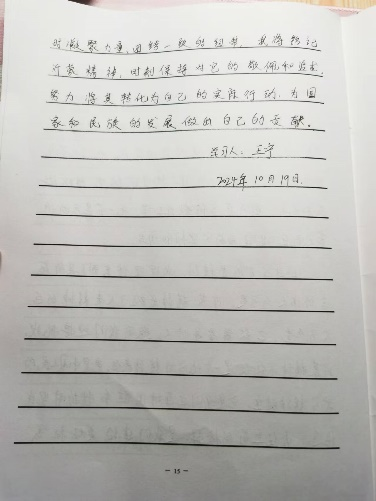 凝聚力量,团结一致的纽带,我将铭记
精神,时刻保持对它的敬佩和
努力将其转化为自己的实际行动,为国
家和民族的发展做出自己的贡献。
人:王宇
2024年10月19日
- 15 -